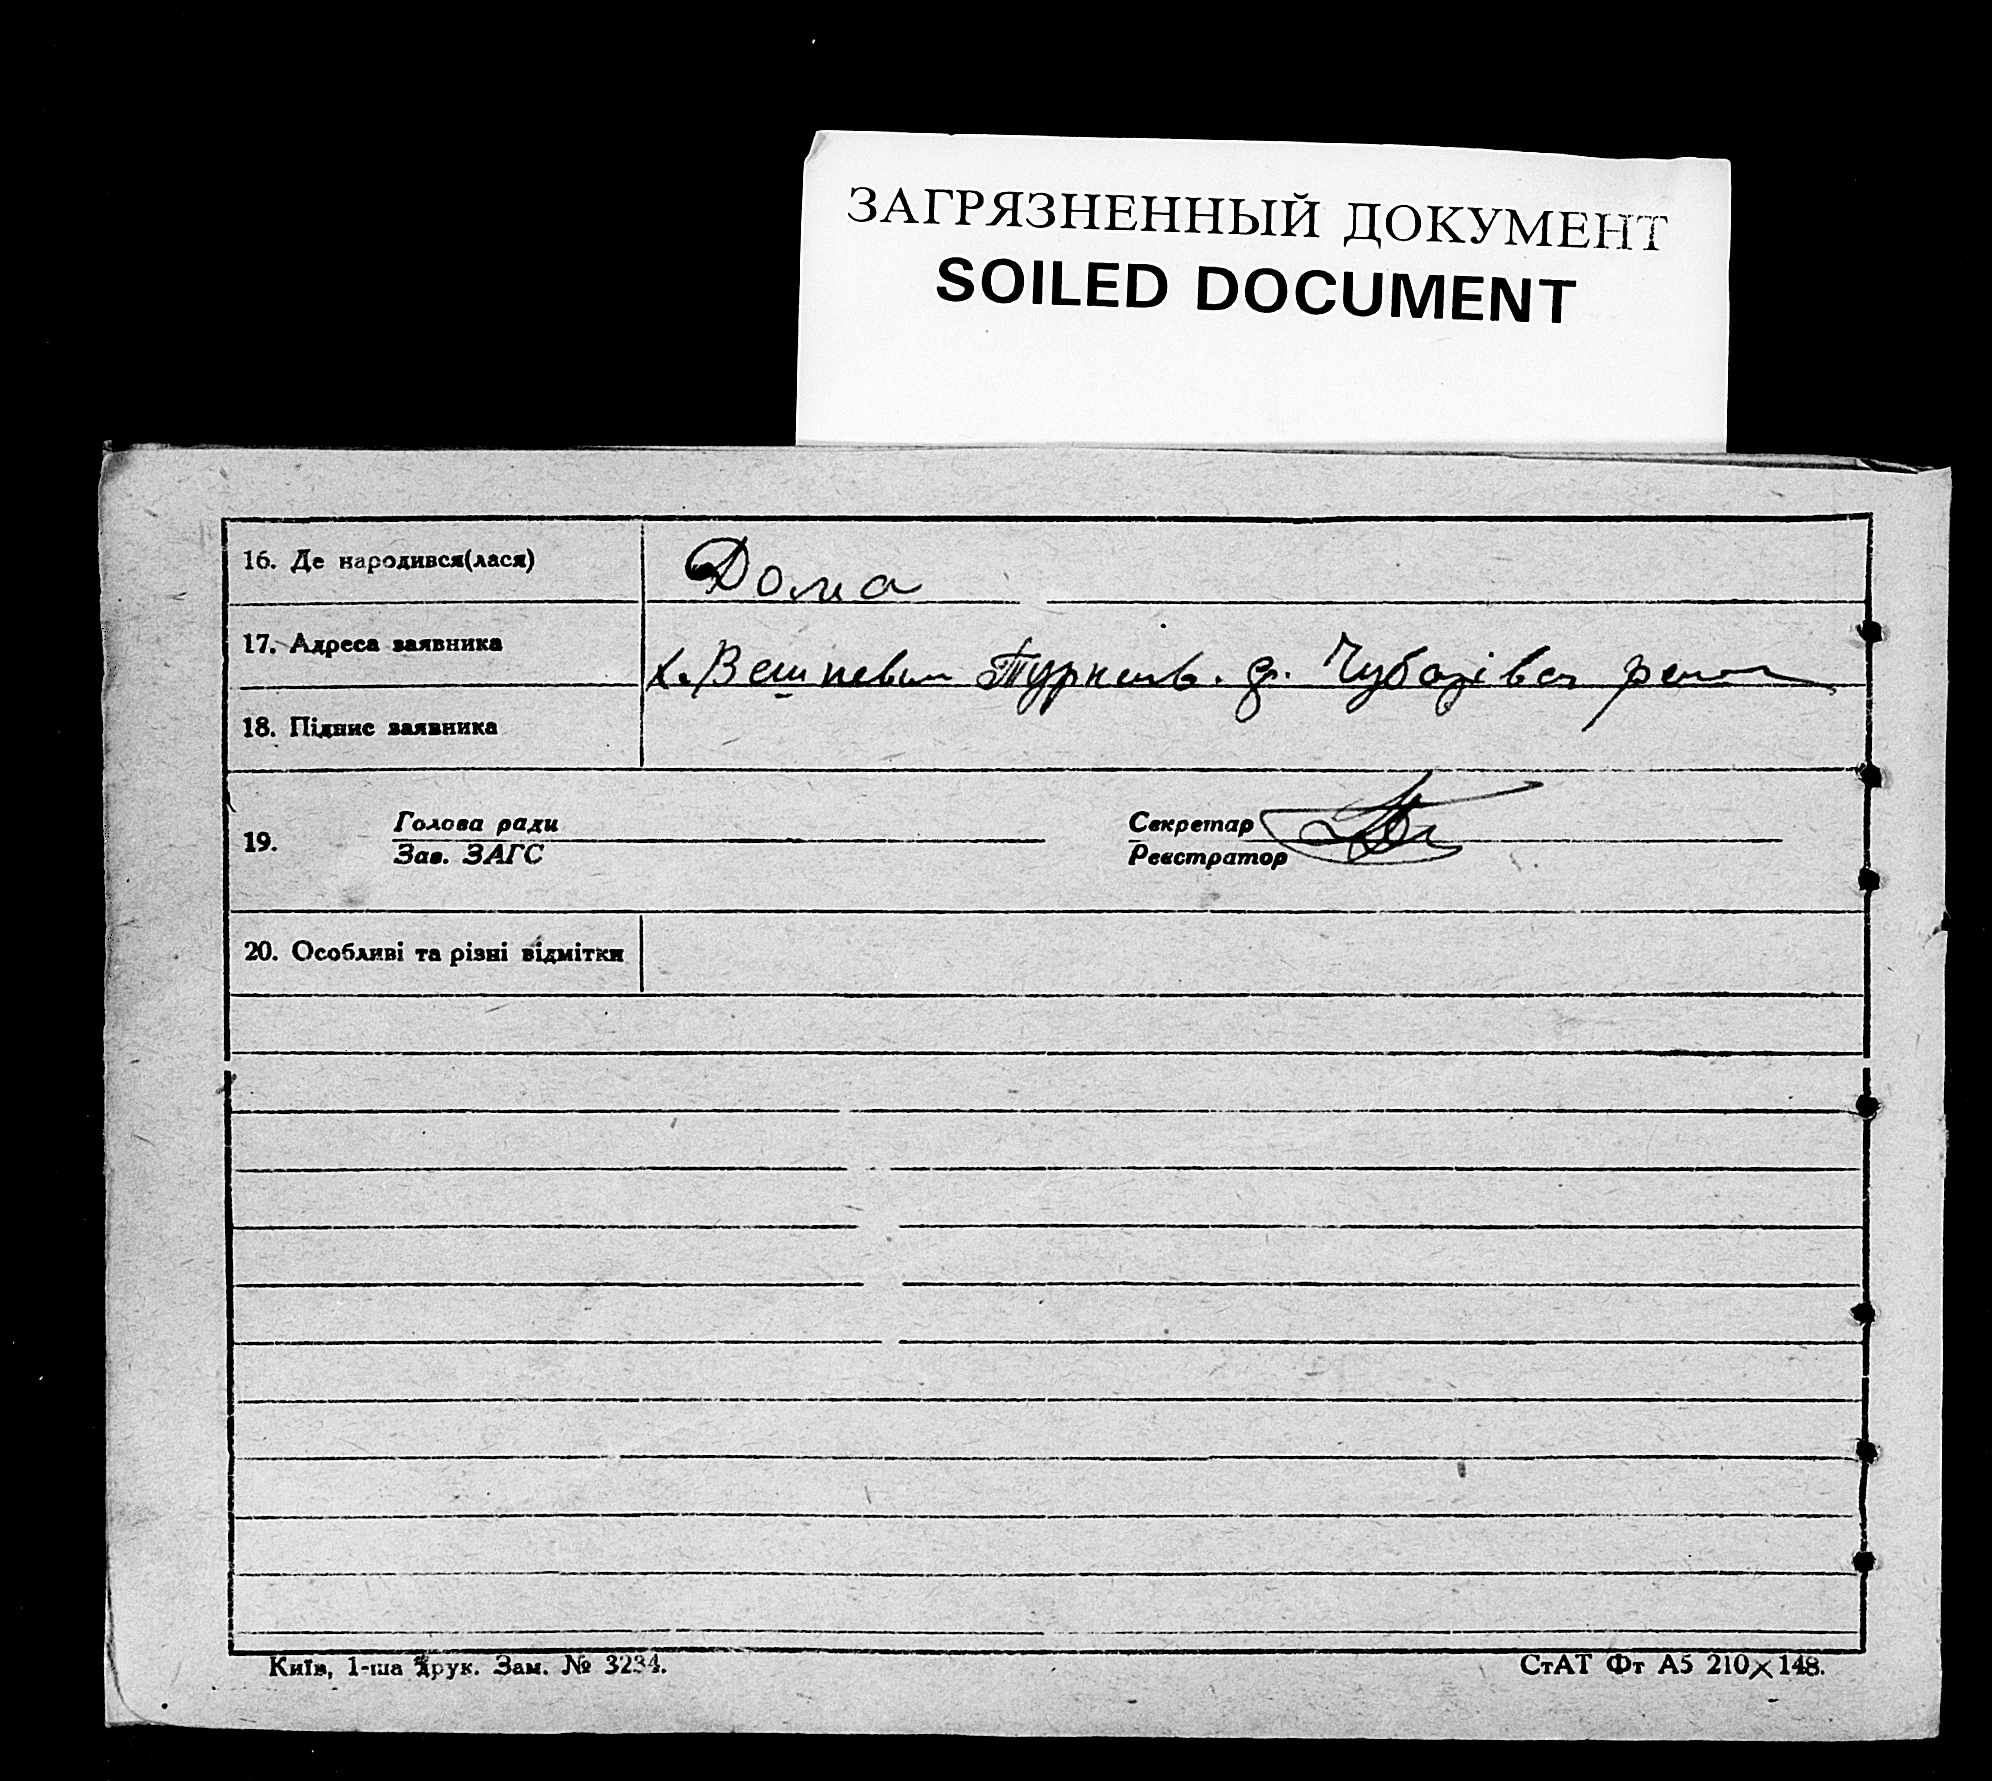 ЗАГРЯЗНЕННЫЙ ДОКУМЕНТ
SOILED DOCUMENT
16. Де народився(лася) Дома
17. Адреса заявника х.
18. Підпис заявника
Голова ради Секретар
19.
Зав. ЗАГС Реєстратор
20. Особливі та різні відмітки
Київ, 1-ша друк. Зам. № 3234. СтАТ Фт А5 210×148.